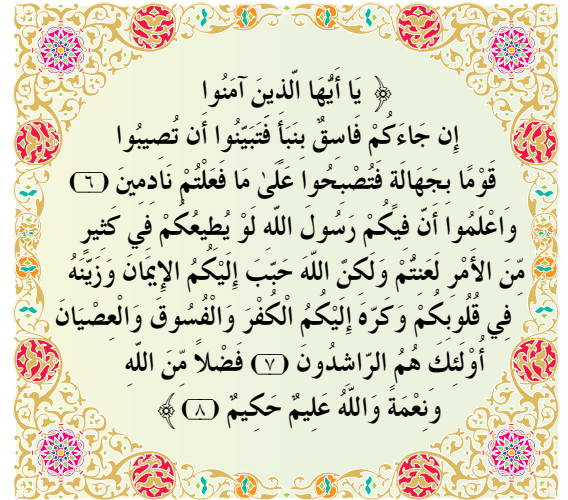 ﴿ يَا أَيُّهَا الَّذِينَ آمَنُوا
إِن جَاءَكُمْ فَاسِقٌ بِنَبَأٍ فَتَبَيَّنُوا أَن تُصِيبُوا
قَوْمًا بِجَهَالَةٍ فَتُصْبِحُوا عَلَىٰ مَا فَعَلْتُمْ نَادِمِينَ (٦)
وَاعْلَمُوا أَنَّ فِيكُمْ رَسُولَ اللَّهِ لَوْ يُطِيعُكُمْ فِي كَثِيرٍ
مِّنَ الأَمْرِ لَعَنِتُّمْ وَلَكِنَّ اللَّهَ حَبَّبَ إِلَيْكُمُ الإِيمَانَ وَزَيَّنَهُ
فِي قُلُوبِكُمْ وَكَرَّهَ إِلَيْكُمُ الْكُفْرَ وَالْفُسُوقَ وَالْعِصْيَانَ
أُوْلَئِكَ هُمُ الرَّاشِدُونَ (٧) فَضْلاً مِّنَ اللَّهِ
وَنِعْمَةً وَاللَّهُ عَلِيمٌ حَكِيمٌ (٨) ﴾